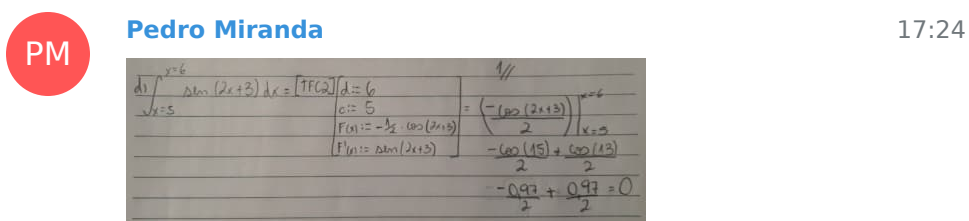 PM
Pedro Miranda
17:24
1//
d) ∫ x=6 x=5 sen (2x+3) dx = [TFC2] d:= 6
c:= 5
F(x):= -1/2 · cos (2x+3)
F'(x):= sen (2x+3)
= (-cos (2x+3) / 2) | x=6 x=5
-cos (15) / 2 + cos (13) / 2
-0,97 / 2 + 0,97 / 2 = 0